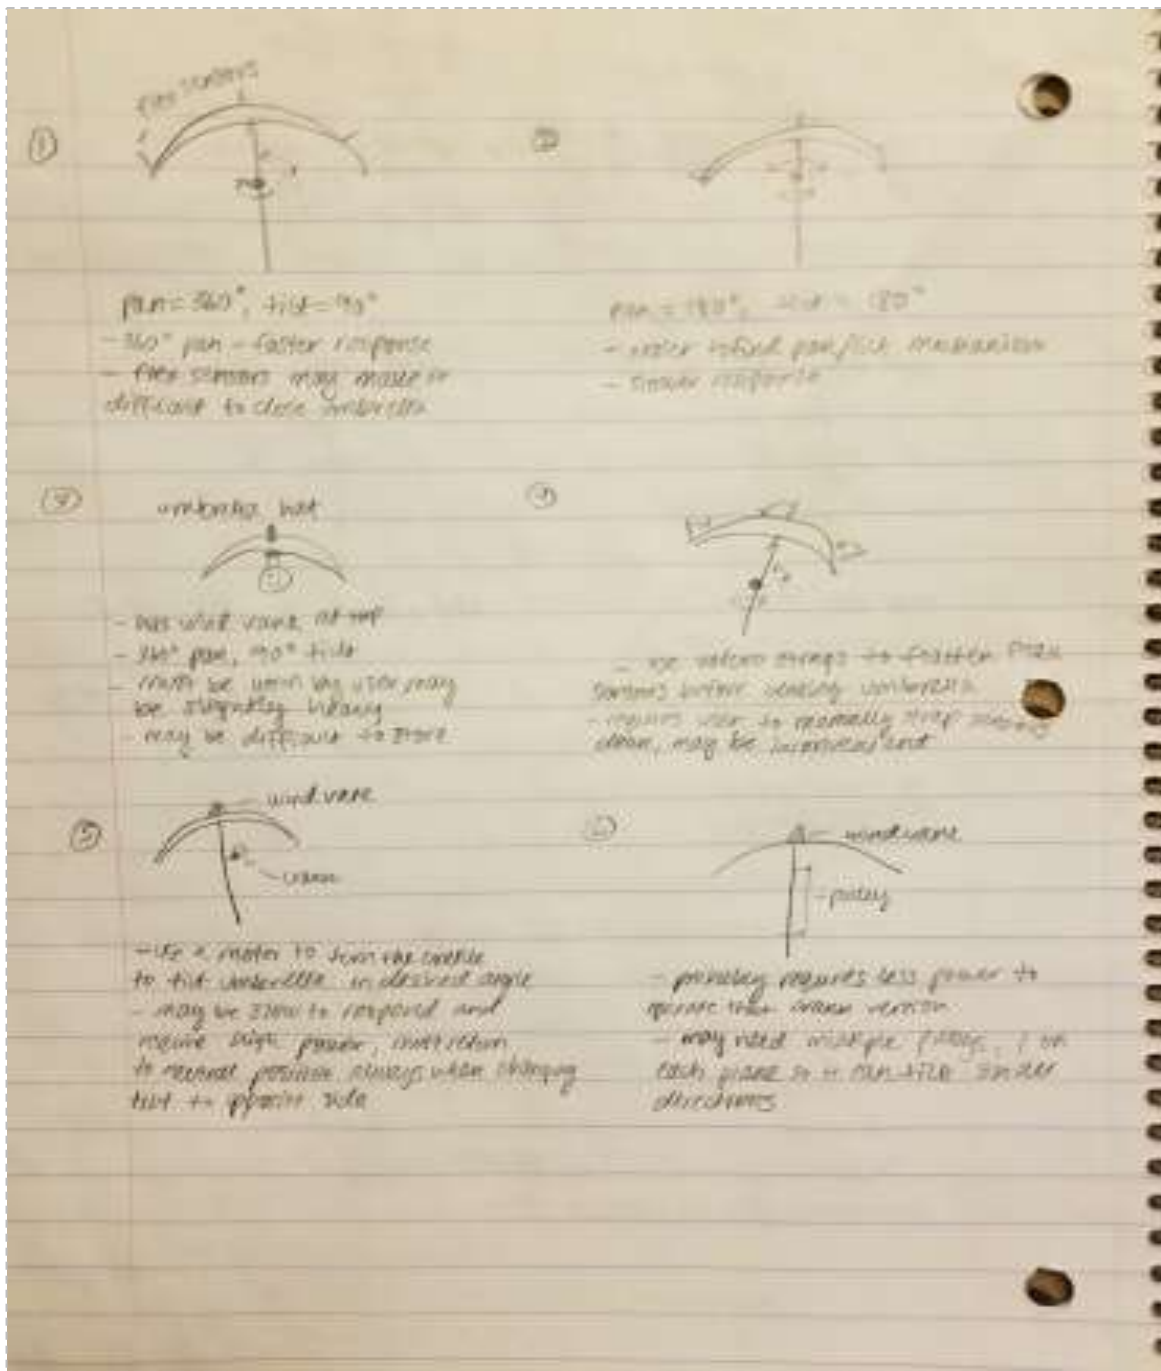 ①
flex sensors
pan = 360°, tilt = 90°
- 360° pan - faster response
- flex sensors may make it
difficult to close umbrella
②
pan = 180°, tilt = 180°
- easier to find pan/tilt mechanism
- slower response
umbrella hat
- has wind vane at top
- 360° pan, 90° tilt
- must be worn by user may
be slightly heavy
- may be difficult to store
- use velcro straps to fasten flex
sensors before closing umbrella
- requires user to manually strap
down, may be inconvenient
⑤
wind vane
crank
- use a motor to turn the
to tilt umbrella in desired angle
- may be slow to respond and
require high power, must return
to neutral position always when changing
tilt to opposite side
⑥
wind vane
pulley
- requires less power to
operate than crank version
- may need multiple 1 on
each plane so it can tilt in
directions